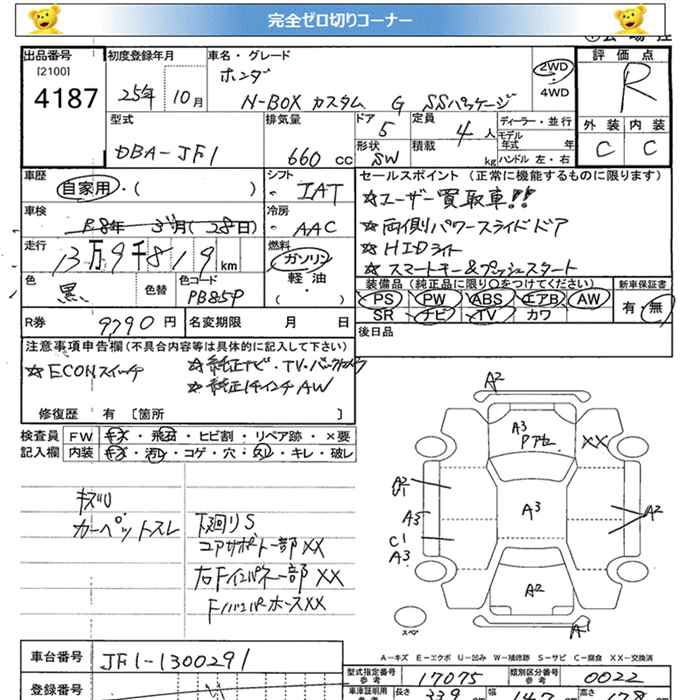 完全ゼロ切りコーナー
出品番号 初度登録年月 車名・グレード 評価点
[2100] ホンダ 2WD
4187 25年 10月 N-BOX カスタム G SSパッケージ 4WD R
型式 排気量 ドア 定員 ディーラー・並行 外装 内装
DBA-JF1 660cc 5 4人 モデル年式 年 C C
形状 SW 積載 kg ハンドル 左・右
車歴 シフト セールスポイント (正常に機能するものに限ります)
自家用・( ) IAT ☆ユーザー買取車!!
車検 冷房 ☆両側パワースライドドア
R8年 3月(28日) AAC ☆HIDライト
走行 燃料 ☆スマートキー&プッシュスタート
13万9千819km ガソリン
軽・油
色 色替 色コード 装備品(純正品に限り○をつけてください) 新車保証書
黒 PB85P PS PW ABS エアB AW 有・無
SR ナビ TV カワ
R券 9790円 名変期限 月 日 後日品
注意事項申告欄(不具合内容等は具体的に記入して下さい)
☆ECONスイッチ ☆純正ナビ・TV・バックカメラ
☆純正14インチAW
修復歴 有 [箇所 ]
検査員 FW キズ・飛石・ヒビ割・リペア跡・×要
記入欄 内装 キズ・汚レ・コゲ・穴・スレ・キレ・破レ
A2
A3
XX
A3
A2
A3
C1
A3
A2
A1
スペア
キズU
カーペットスレ 下廻りS
コアサポート一部XX
右Fインパネ一部XX
FバンパーホースXX
A-キズ E-エクボ U-凹み W-補修跡 S-サビ C-腐食 XX-交換済
車台番号 JF1-1300291
型式指定番号 参考 17075 類別区分番号 参考 0022
登録番号
車庫証明用 参考 長さ 339 幅 147 高さ 178